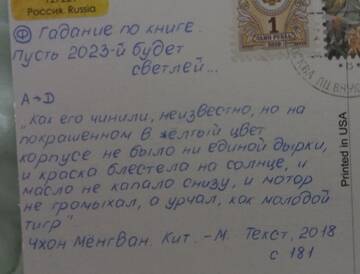 Россия. Russia
Гадание по книге.
Пусть 2023-й будет
светлей...
А→D
"Как его чинили, неизвестно, но на
покрашенном в жёлтый цвет
корпусе не было ни единой дырки,
и краска блестела на солнце, и
масло не капало снизу, и мотор
не громыхал, а урчал, как молодой
тигр"
Чхон Мёнгван. Кит. -М. Текст, 2018
с 181
1
Printed in USA